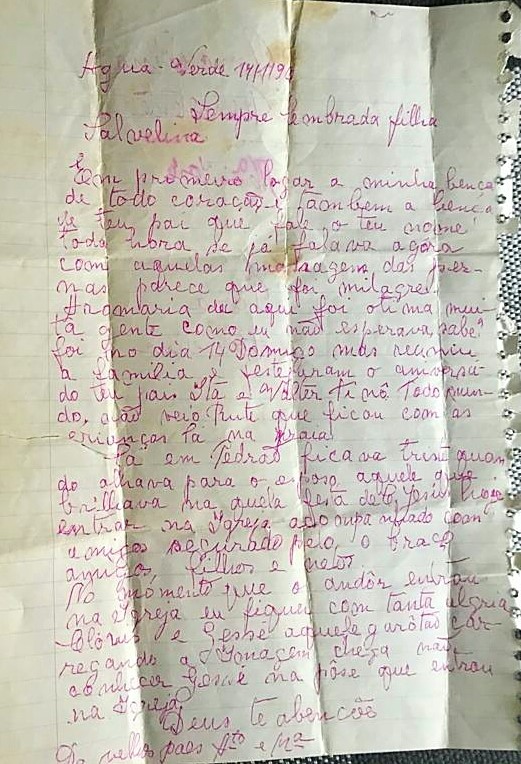 Agua-Verde 17/1/19
Sempre lembrada filha
Salvelina
Em promeiro logar a minha bença
de todo coração e tãombem a bença
de teu pai que fale o teu nome
toda hora se já falava agora
com aquelas massagem das per-
nas parece que foi milagre
A romaria de aqui foi otima mui-
ta gente como eu não esperava, sabe?
foi no dia 14 Domigo mas reuniu
a familia e festejaram o aniversa
do teu pai Ita e Valter ti nô todo mun-
do, não veio Rute que ficou com as
crianças la na praia
La em Pedrão ficava triste quan
do alhava para o esposo aquele que
brilhava na quela festa de Jesus hoje
entrar na Igreja acoupanhado com
amigos segurado pelo, o braço
amigos, filhos e netos.
No momento que o andôr entrou
na Igreja eu fiquei com tanta alegria
Clóvis e Jessé aquele garôtão car-
regando a Imagem chega não
conhicer Jessé na pôse que entrou
na Igreja
Deus te abençôe
Do velhos paes Ato e Mª